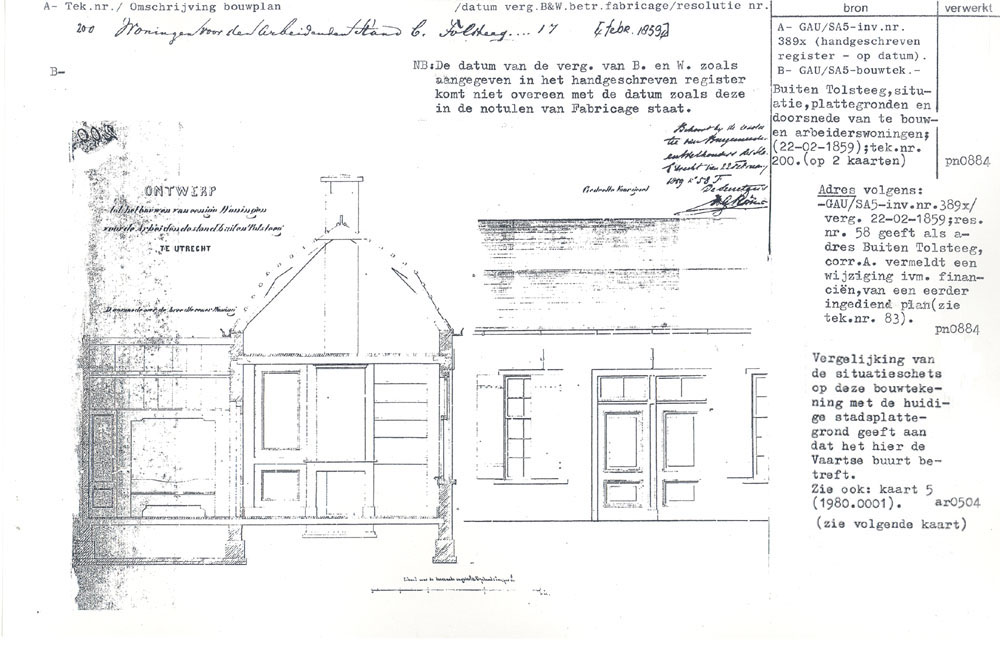 A- Tek.nr./ Omschrijving bouwplan /datum verg.B&W.betr.fabricage/resolutie nr.
bron
verwerkt
200 Woningen voor den Arbeidenden Stand B. Tolsteeg.... 17 [4 febr. 1859]
B-
NB:De datum van de verg. van B. en W. zoals
aangegeven in het handgeschreven register
komt niet overeen met de datum zoals deze
in de notulen van Fabricage staat.
A- GAU/SA5-inv.nr.
389x (handgeschreven
register - op datum).
B- GAU/SA5-bouwtek.-
Buiten Tolsteeg,situ-
atie,plattegronden en
doorsnede van te bouw-
en arbeiderswoningen;
(22-02-1859);tek.nr.
200.(op 2 kaarten)
pn0884
Adres volgens:
-GAU/SA5-inv.nr.389x/
verg. 22-02-1859;res.
nr. 58 geeft als a-
dres Buiten Tolsteeg,
corr.A. vermeldt een
wijziging ivm. finan-
ciën,van een eerder
ingediend plan(zie
tek.nr. 83).
pn0884
Vergelijking van
de situatieschets
op deze bouwteke-
ning met de huidi-
ge stadsplatte-
grond geeft aan
dat het hier de
Vaartse buurt be-
treft.
Zie ook: kaart 5
(1980.0001).
ar0504
(zie volgende kaart)
200
ONTWERP
tot het bouwen van eenige Woningen
voor de Arbeidende stand buiten Tolsteeg
TE UTRECHT
Behoort bij de resolu
tie van Burgemeester
en Wethouders der St.
Utrecht van 22 February
1859 No 58 F
De Secretaris
Gedeelte Voorgevel